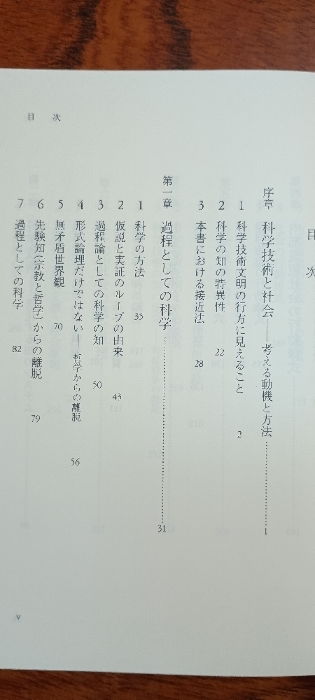 目次
目次
序章 科学技術と社会 考える動機と方法……1
1 科学技術文明の行方に見えること 2
2 科学の知の特異性 22
3 本書における接近法 28
第一章 過程としての科学……31
1 科学の方法 35
2 仮説と実証のループの由来 43
3 過程論としての科学の知 50
4 形式論理だけではない──哲学からの離脱 56
5 無矛盾世界観 70
6 先験知(宗教と哲学)からの離脱 79
7 過程としての科学 82
iv